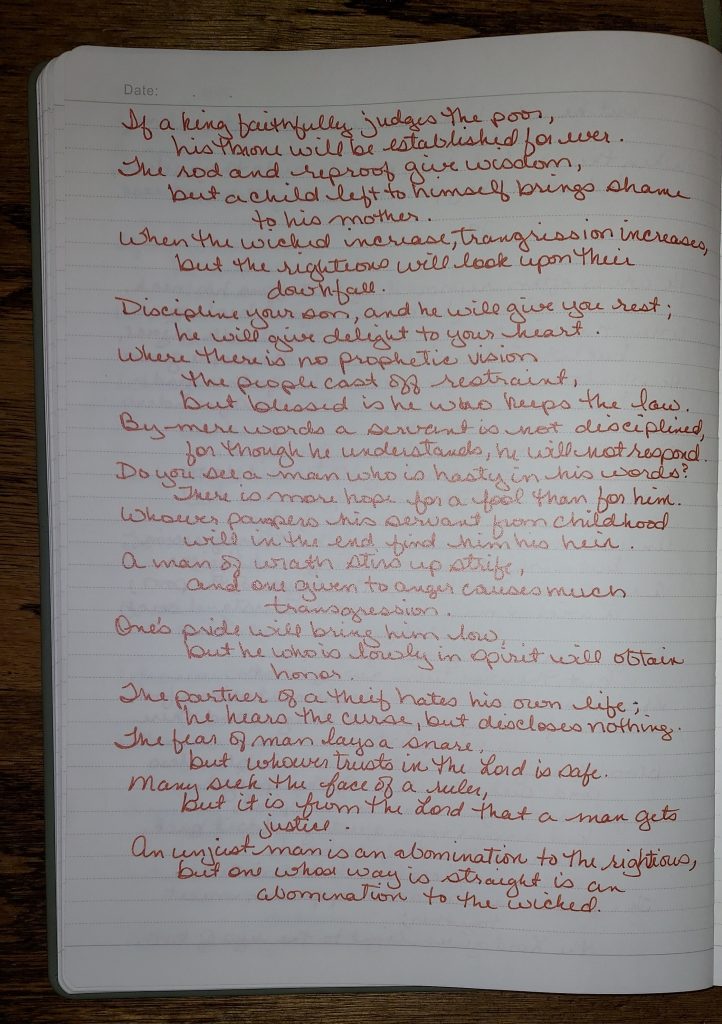 Date:
If a king faithfully judges the poor,
his throne will be established for ever.
The rod and reproof give wisdom,
but a child left to himself brings shame
to his mother.
When the wicked increase, trangression increases,
but the righteous will look upon their
downfall.
Discipline your son, and he will give you rest;
he will give delight to your heart.
Where there is no prophetic vision
the people cast off restraint,
but blessed is he who keeps the law.
By mere words a servant is not disciplined,
for though he understands, he will not respond.
Do you see a man who is hasty in his words?
There is more hope for a fool than for him.
Whoever pampers his servant from childhood
will in the end find him his heir.
A man of wrath stirs up strife,
and one given to anger causes much
transgression.
One's pride will bring him low,
but he who is lowly in spirit will obtain
honor.
The partner of a theif hates his own life;
he hears the curse, but discloses nothing.
The fear of man lays a snare,
but whoever trusts in the Lord is safe.
Many seek the face of a ruler,
but it is from the Lord that a man gets
justice.
An unjust man is an abomination to the rightious,
but one whose way is straight is an
abomination to the wicked.